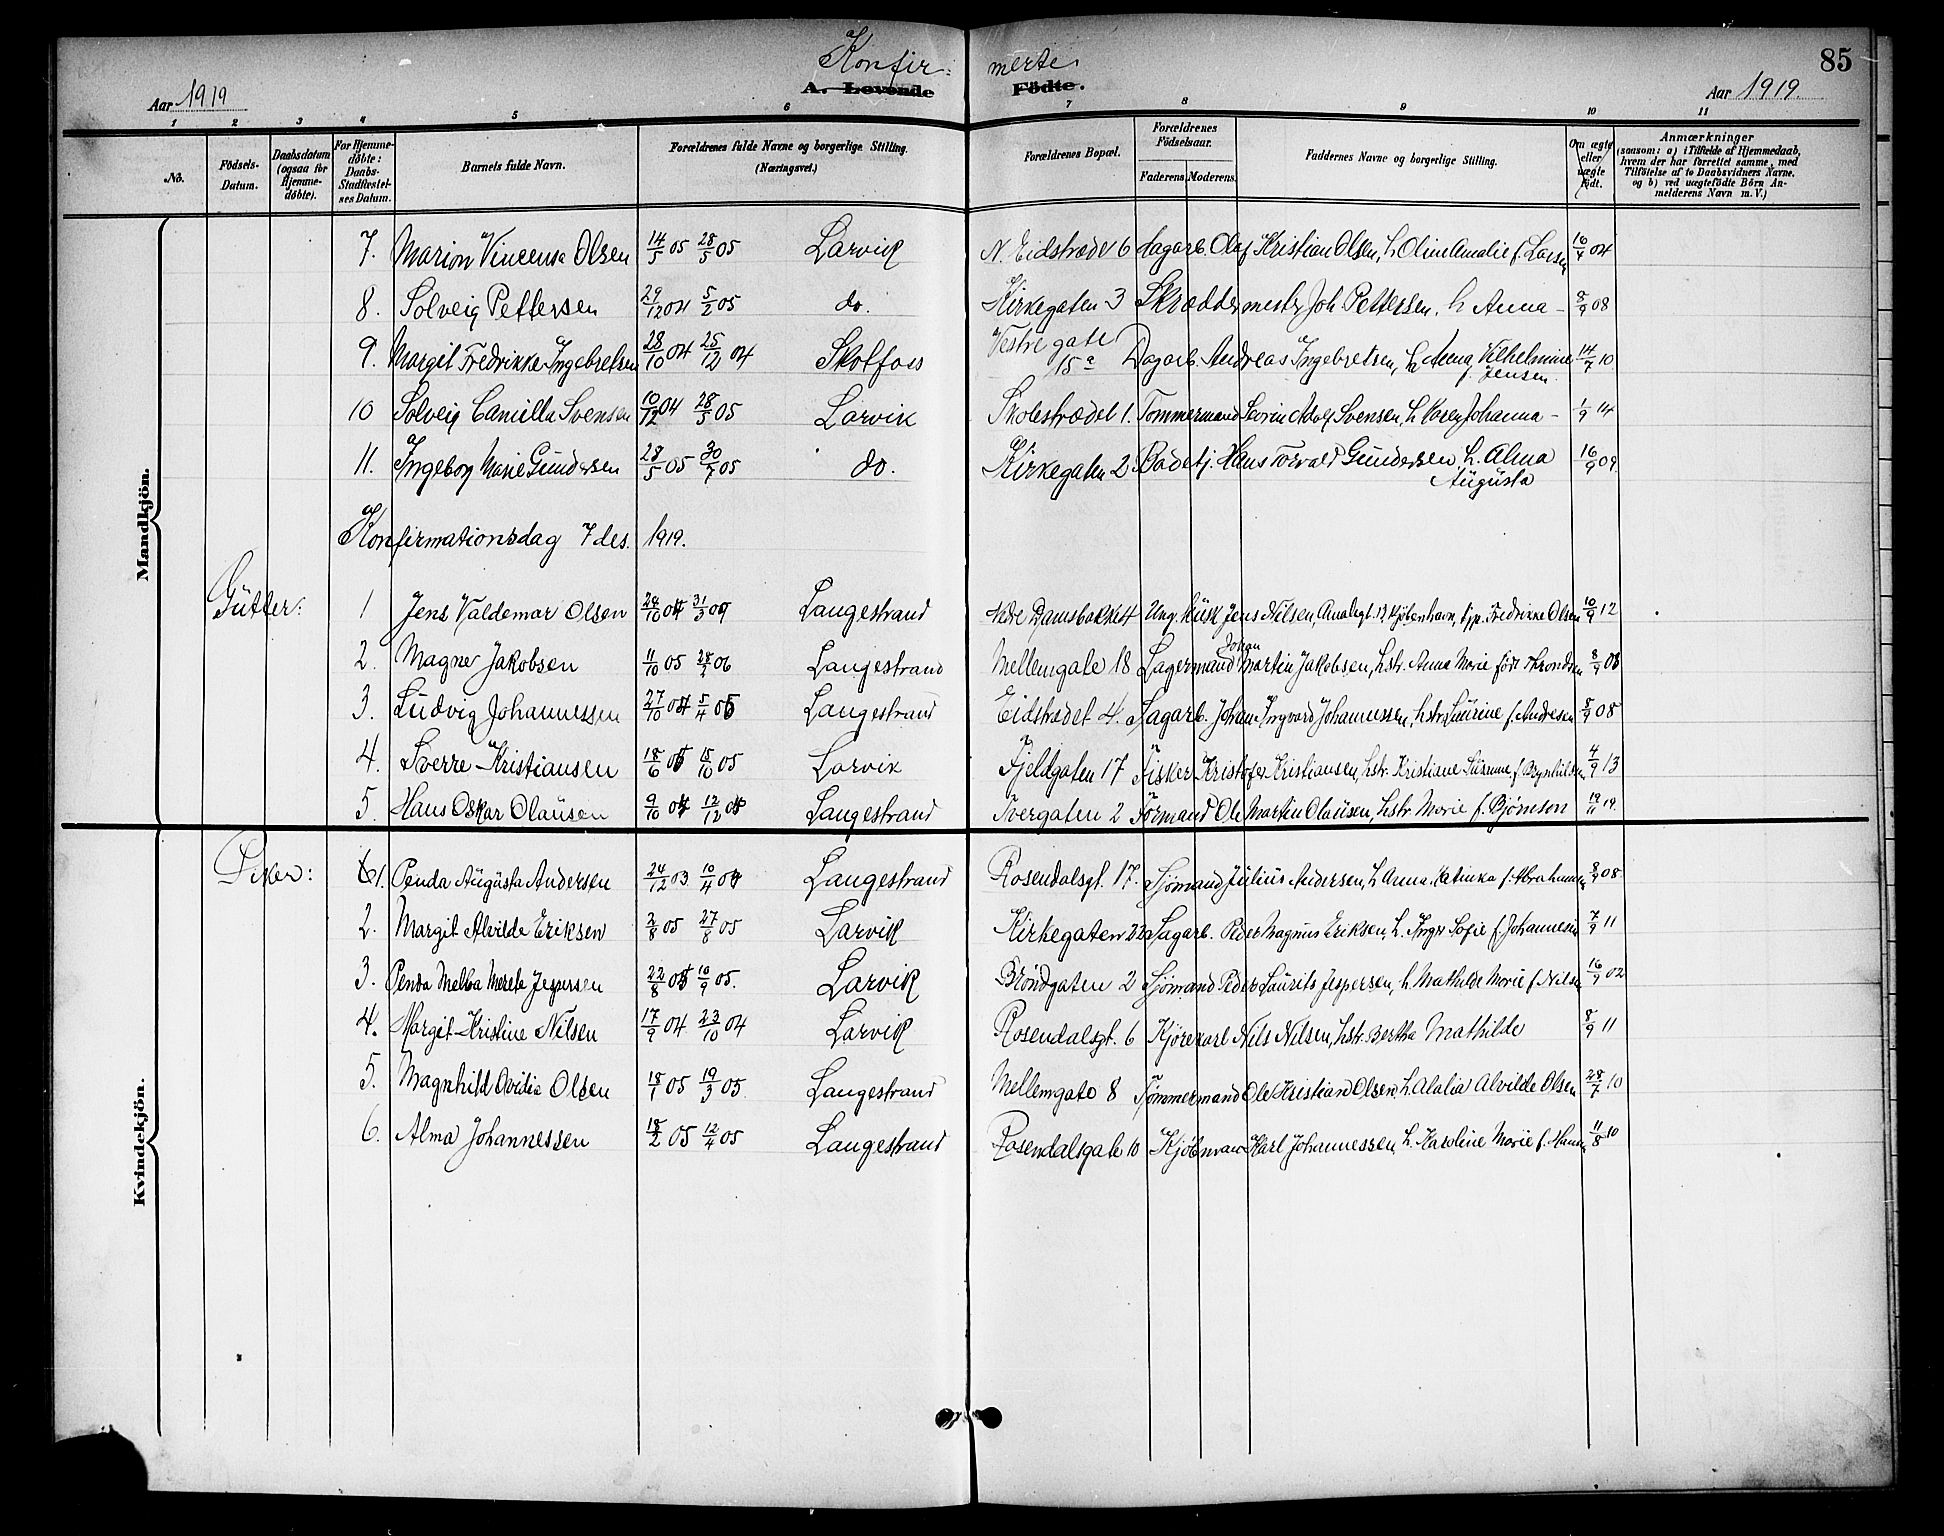 Konfir= merte.
85
Aar 1919
A. Levende Födte.
Aar 1919.
1 2 3 4 5 6 7 8 9 10 11
No.
Födsels-Datum.
Daabsdatum (ogsaa for Hjemme-döbte).
For Hjemme-döbte: Daabs-Stadfæstel-ses Datum.
Barnets fulde Navn.
Forældrenes fulde Navne og borgerlige Stilling. (Næringsvei.)
Forældrenes Bopæl.
Forældrenes Födselsaar.
Faderens. Moderens.
Faddernes Navne og borgerlige Stilling.
Om ægte eller uægte födt.
Anmærkninger (saasom: a) i Tilfælde af Hjemmedaab, hvem der har forrettet samme, med Tilföielse af to Daabsvidners Navne, og b) ved uægtefödte Börn An-melderens Navn m. V.)
Mandkjön.
7. Marion Vincensa Olsen 14/5 05 28/5 05 Larvik N. Eidstrædet 6 Sagarb. Olaf Kristian Olsen, h. Oline Amalie f. Larsen 16/9 04
8. Solveig Pettersen 29/12 04 5/2 05 do. Kirkegaten 3 Skræddermester Joh. Pettersen, h Anna - 8/9 08
9. Margit Fredrikke Ingebretsen 28/10 04 25/12 04 Skotfoss Vestregate 15 a Dagarb. Andreas Ingebretsen, h. Anna Vilhelmine f. Jensen 14/7 10
10 Solveig Camilla Svensen 10/12 04 28/5 05 Larvik Skolestrædet 1. Tømmermand Adolf Svensen, h. Karen Johanna - 1/9 14
11. Ingeborg Marie Gundersen 28/5 05 30/7 05 do. Kirkegaten 2 Badetj. Hans Torvald Gundersen h. Alma Augusta 16/9 09
Konfirmationsdag 7 des. 1919.
Gutter: 1 Jens Valdemar Olsen Langestrand Nedre Damsbakke 4 Ung. Musk Jens Nilsen, Kjøbenhavn, Fredrikke Olsen 10/9 12
2. Magner Jakobsen 11/10 05 06 Langestrand Mellemgate 18 Lagermand Johan Martin Jakobsen, hstr. Anna Marie født 8/9 08
3. Ludvig Johannessen 27/10 04 5/4 05 Langestrand Eidstrædet 4. Sagarb. Johan Ingvard Johannessen, hstr. Laurine f. Andresen 8/9 08
4. Sverre Kristiansen 18/6 05 15/10 05 Larvik Fjeldgaten 17 Fisker Kristofer Kristiansen, hstr. Kristiane f. Brynhildsen 4/9 13
5. Hans Oskar Olausen 9/10 04 12/12 04 Langestrand Tvergaten 2 Formand Ole Martin Olausen, hstr Marie f. Bjørnson 19/11 19.
Kvindekjön.
Piker: 1. Penda Augusta Andersen 24/12 03 10/4 04 Langestrand Rosendalsgt. 17. Sjømand Julius Andersen, h. Anna Katinka f. Abrahamsen 8/9 08
2. Margit Alvilde Eriksen 2/8 05 27/8 05 Larvik Kirkegaten 22 Sagarb. Peder Magnus Eriksen, h. Inger Sofie f. Johannesen 7/9 11
3. Penda Melba Merete Jespersen 22/8 05 10/9 05. Larvik Brøndgaten 2 Sjømand Peder Laurits Jespersen, h Mathilde Marie f. Nilsen 16/9 02
4. Margit Kristine Nilsen 17/9 04 23/10 04 Larvik Rosendalsgt. 6 Kjørekarl Nils Nilsen, hstr. Bertha Mathilde 8/9 11
5. Magnhild Ovidia Olsen 18/1 05 19/3 05. Langestrand Mellemgate 8 Tømmermand Ole Kristian Olsen, h. Alalia Alvilde Olsen 28/7 10
6. Alma Johannessen 18/2 05 12/4 05 Langestrand Rosendalsgate 10 Kjøbmand Karl Johannessen, h. Karoline Marie f. Hansen 11/8 10